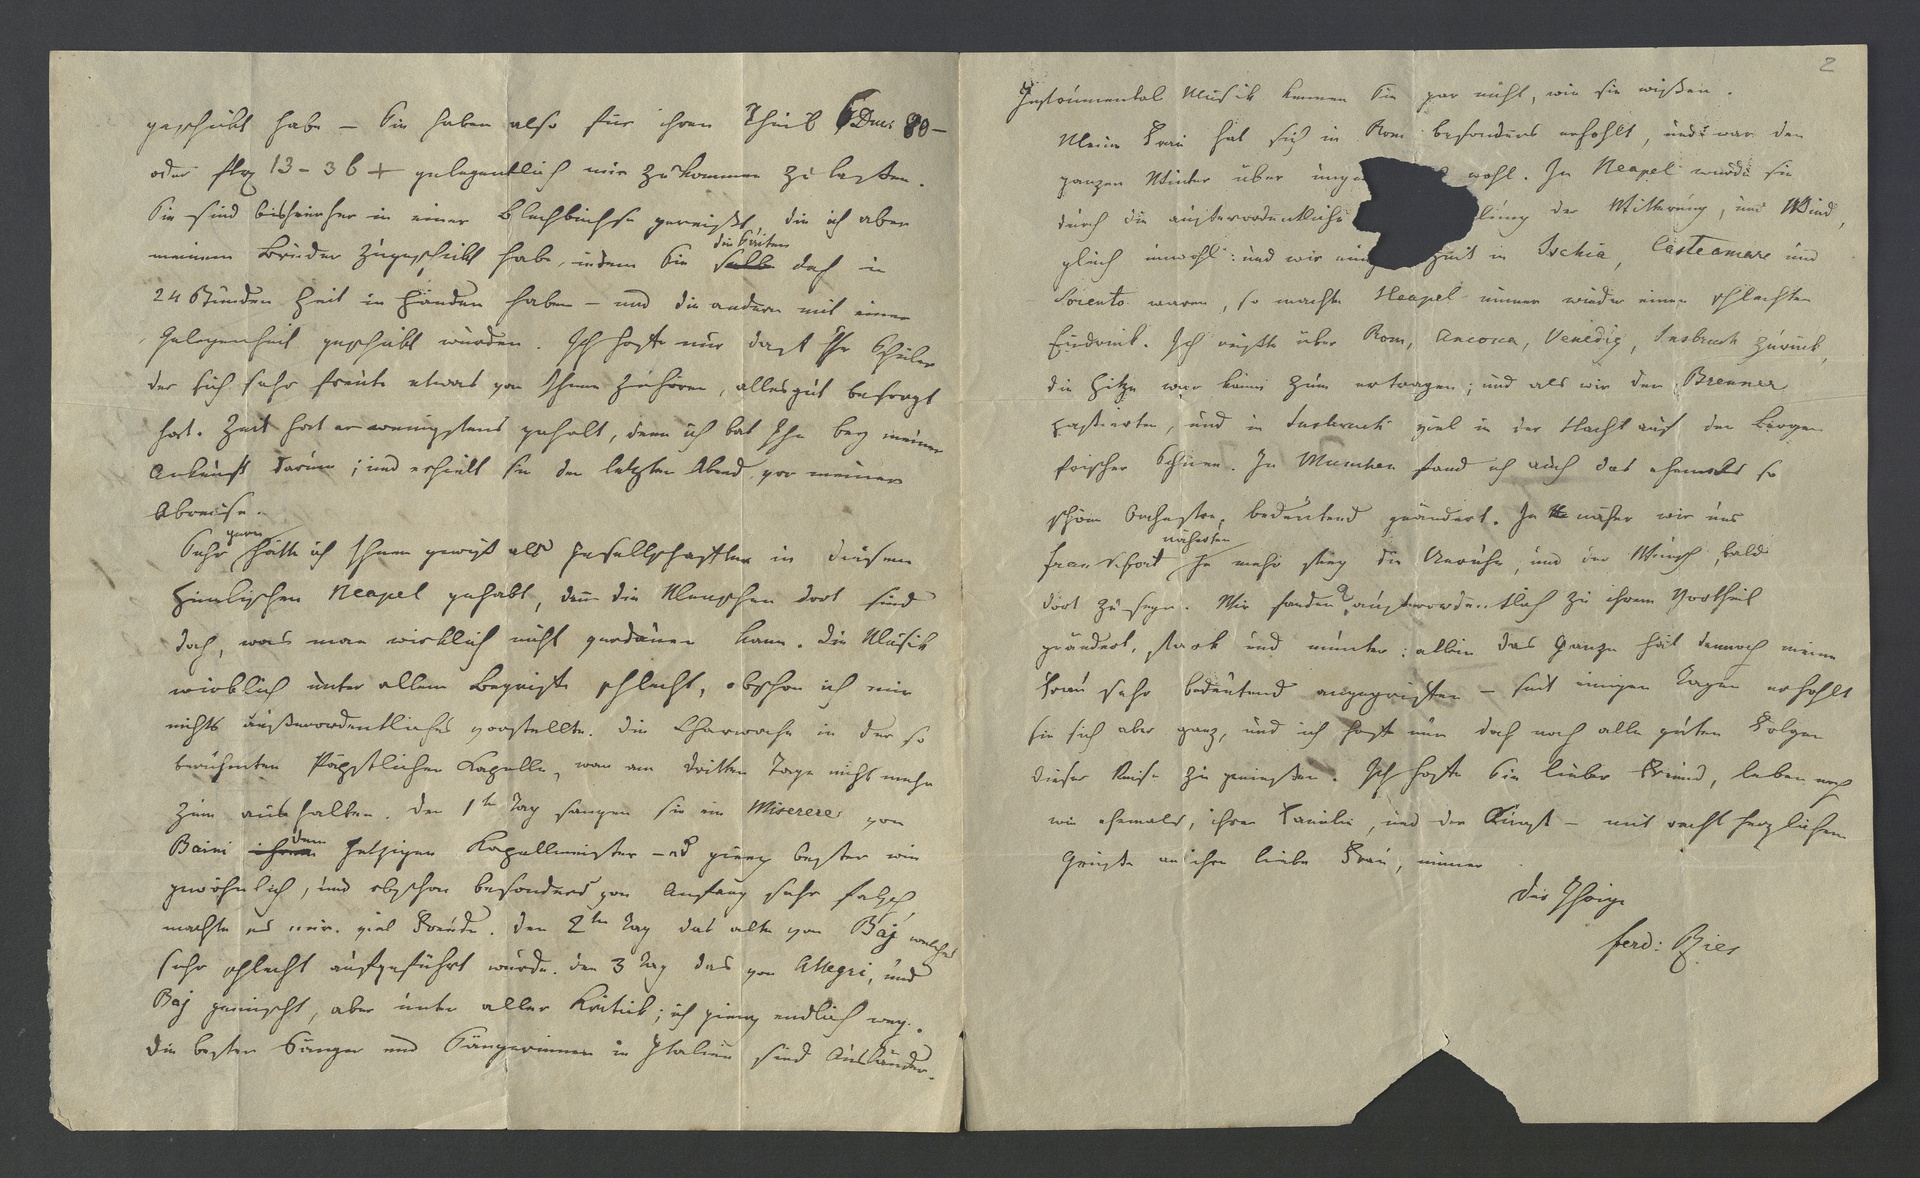 geschickt habe – Sie haben also für ihren Theil 6 Duc: 80 –
oder 13 – 36 gelegentlich mir zukommen zu lassen.
Sie sind bishierher in einer Blechbüchse gereißt, die ich aber
meinem Bruder zugeschickt habe, indem Sie selbe die Saiten doch in
24 Stunden Zeit in Händen haben – und die andern mit einer
Gelegenheit geschickt würden. Ich hoffe nur daß Ihr Schüler
der sich sehr freute etwas von Ihnen zu hören, alles gut besorgt
hat. Zeit hat er wenigstens gehabt, denn ich bat Ihn bey meiner
Ankunft darum; und erhielt sie den letzten Abend vor meiner
Abreise.
Sehr gern hätte ich Ihnen gewiß als Gesellschafter in diesem
Himlischen Neapel gehabt, denn die Menschen dort sind
doch, was man wirklich nicht verdauen kann. Die Musik
wirklich unter allem Begriffe schlecht, obschon ich mir
nichts außerordentliches vorstellte. Die Charwoche in der so
berühmten Päpstlichen Kapelle, war am dritten Tage nicht mehr
zum aushalten. Den 1ten Tag sangen sie ein Miserere von
Baini ihrem dem jetzigen Kapellmeister – es gieng besser wie
gewöhnlich, und obschon besonders von Anfang sehr falsch
machte es mir viel Freude. Den 2ten Tag das alte von Baj welches
sehr schlecht aufgeführt wurde. den 3 Tag das von Allegri, und
Baj gemischt, aber unter aller Kritick; ich gieng endlich weg.
Die besten Sänger und Sängerinnen in Italien sind Ausländer.
2
Instrumental Musick kennen Sie gar nicht, wie sie wißen.
Meine Frau hat sich in Rom besonders erhohlt, und war den
ganzen Winter über wohl. In Neapel wurde sie
durch die außerordentliche der Witterung, und Wind,
gleich unwohl: und wir in Ischia, Casteamare und
Sorento waren, so machte Neapel immer wieder einen schlechten
Eindruck. Ich reißte über Rom, Ancona, Venedig, Insbruck zurück,
die Hitze war kaum zum ertragen; und als wir den Brenner
passierten, und in Insbruck viel in der Nacht auf den Bergen
frischer Schnee. In München fand ich auch das ehemals so
schöne Orchester, bedeutend geändert. Je näher wir uns
Frankfort näherten je mehr stieg die Unruhe, und der Wunsch, bald
dort zu seyn. Wir fanden außerordentlich zu ihrem Vortheil
geändert, stark und munter: allein das Ganze hat dennoch meine
Frau sehr bedeutend angegriffen – seit einigen Tagen erhohlt
sie sich aber ganz, und ich hoffe nun doch noch alle guten Folgen
dieser Reise zu genießen. Ich hoffe Sie lieber Freund, leben noch
wie ehemals, ihrer Familie, und der Kunst – mit recht herzlichen
Grüße an ihre liebe Frau, immer
der Ihrige
Ferd: Ries